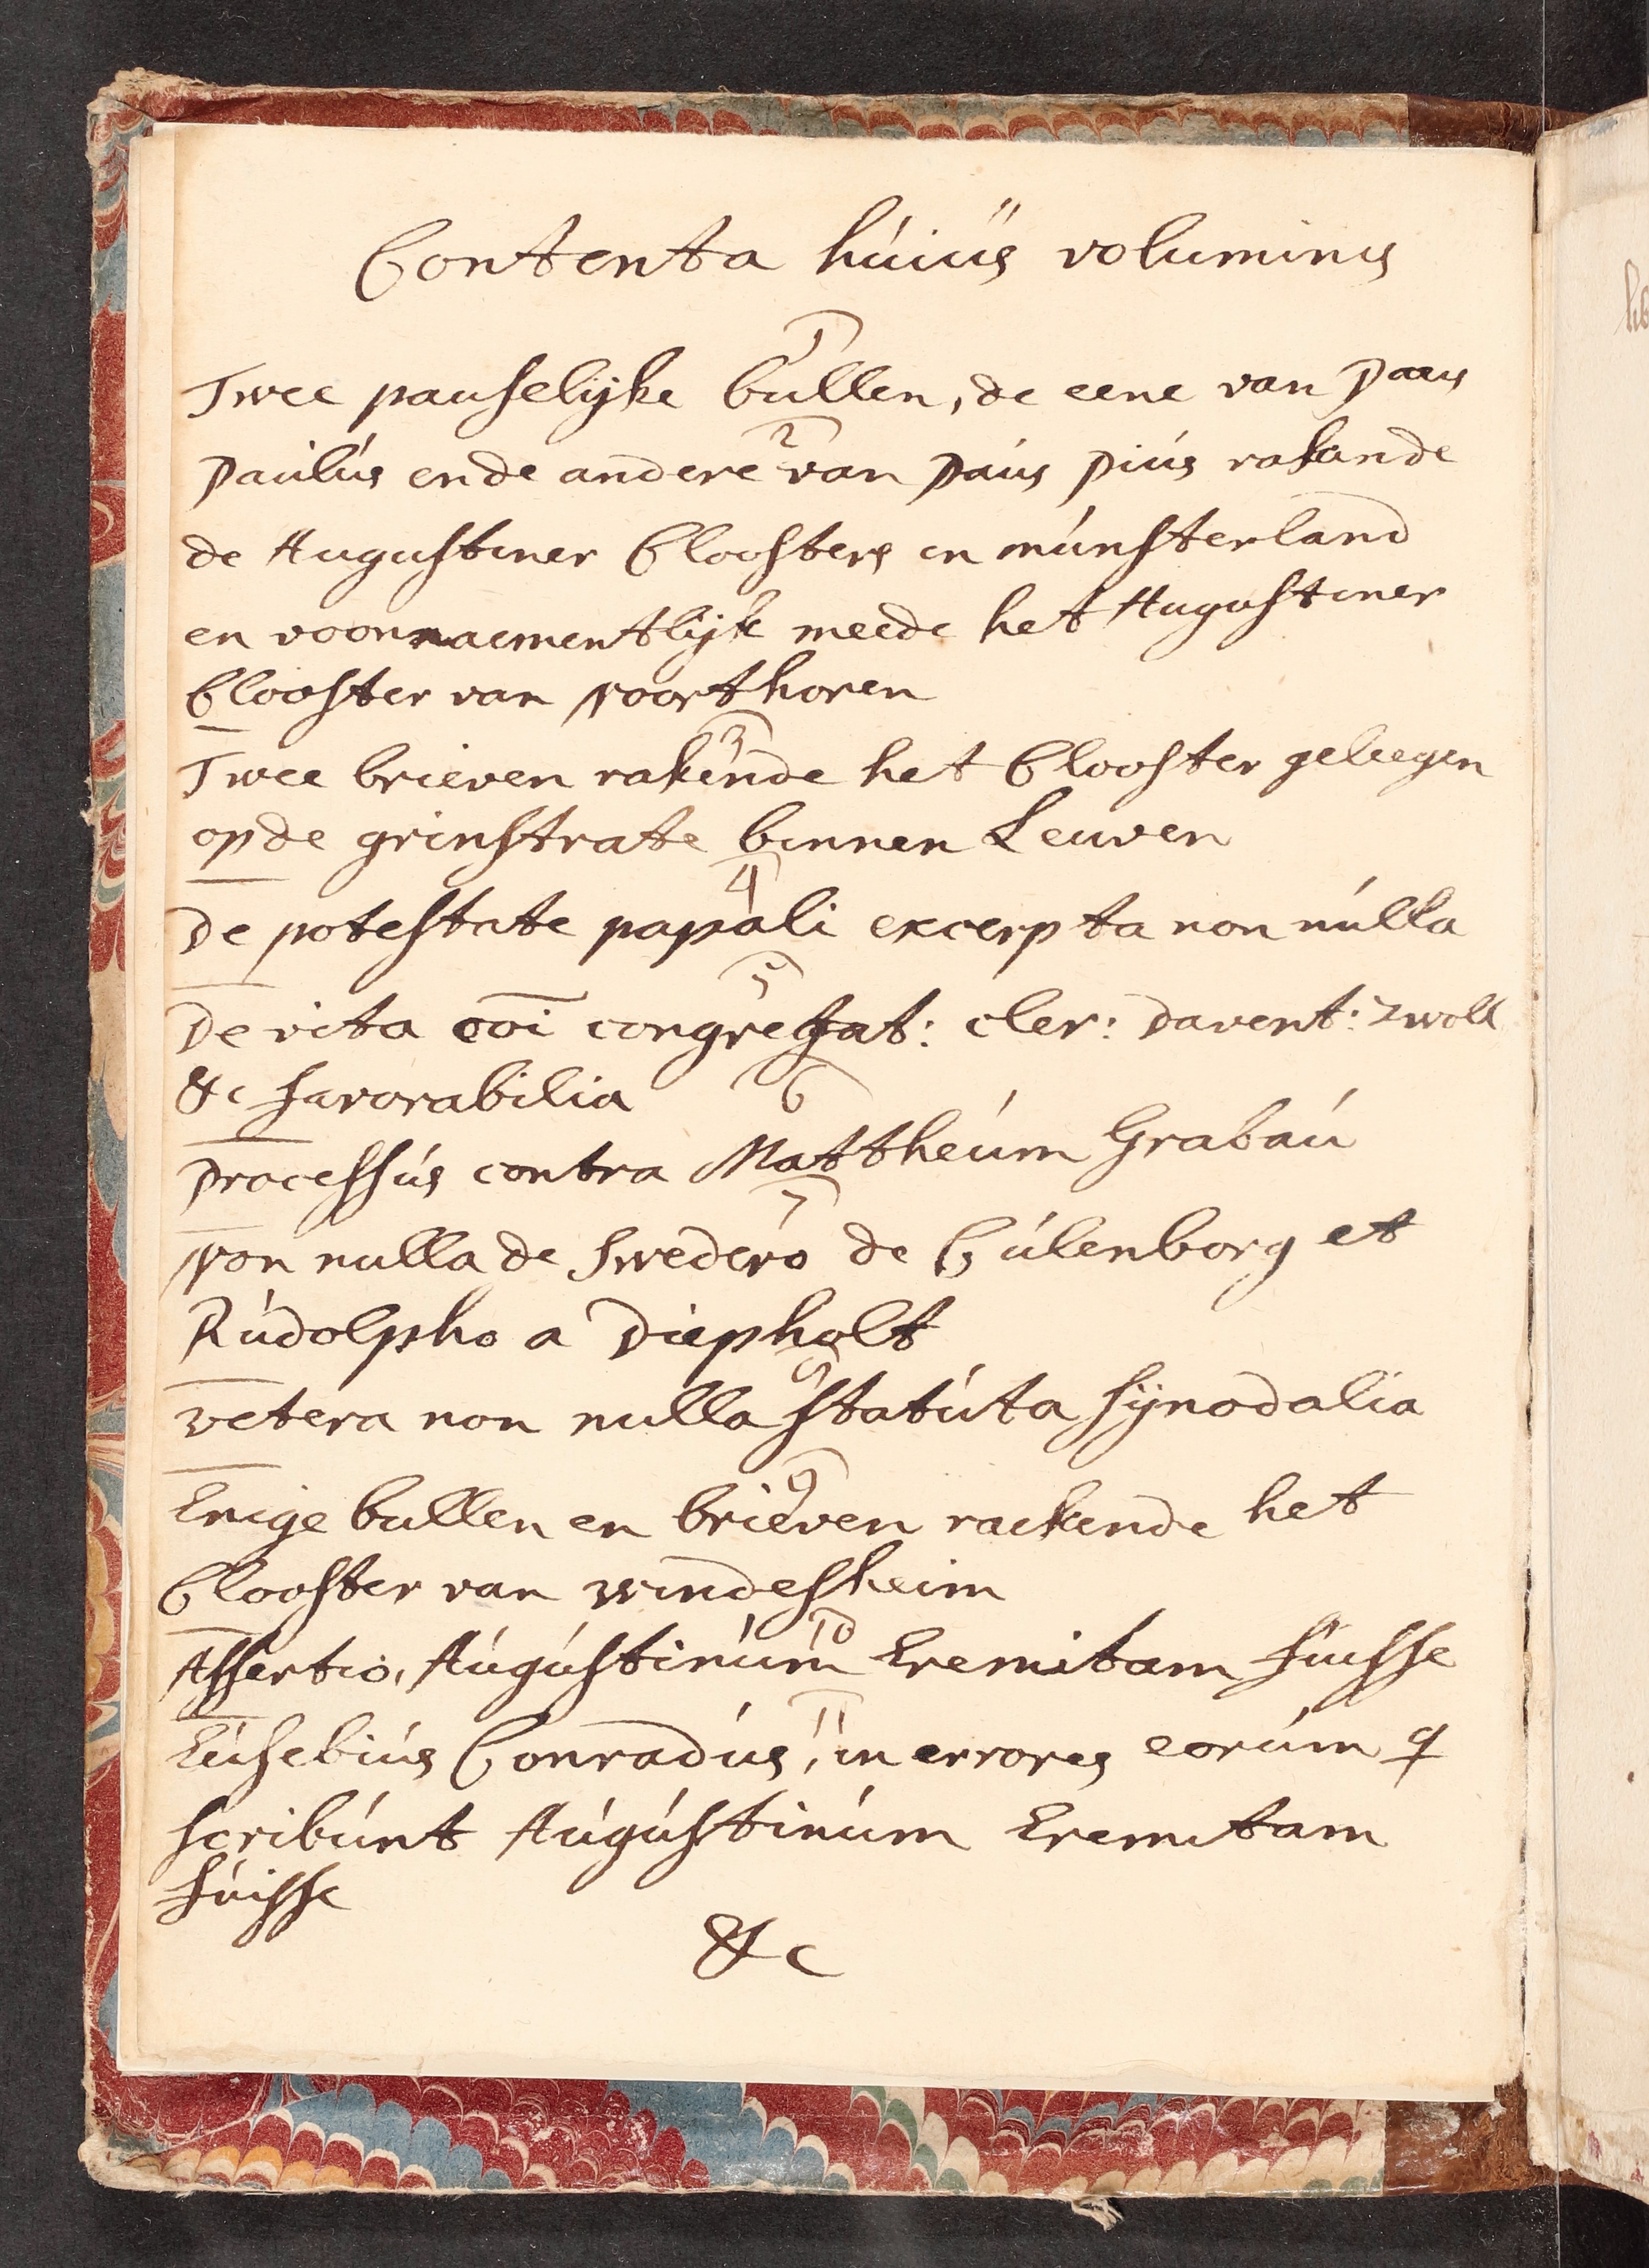 Contenta húiús voluminis
1
Twee pauselijke bullen, de eene van Paus
2
Paulús ende andere van Paús Piús rakande
de Augustiner Cloosters in múnsterland
en voornaementlijk meede het Augustiner
Clooster van Noorthoren
3
Twee brieven rakende het Clooster geleegen
op de grinstrate binnen Leuven
4
De potestate papali excerpta non núlla
5
De vita coi congregat: cler: Davent: Zwoll
&c favorabilia
6
Processús contra Mattheúm Grabaú
7
Non nulla de Swedero de Cúlenborg et
Rúdolpho a Diepholt
8
vetera non nulla statúta sÿnodalia
9
Enige bullen en brieven rackende het
Clooster van windesheim
10
Assertio, Aúgústinúm Eremitam fuisse
11
Eúsebiús Conradús, in errores eorúm q
scribúnt Aúgústinúm Eremitam
fúisse
&c